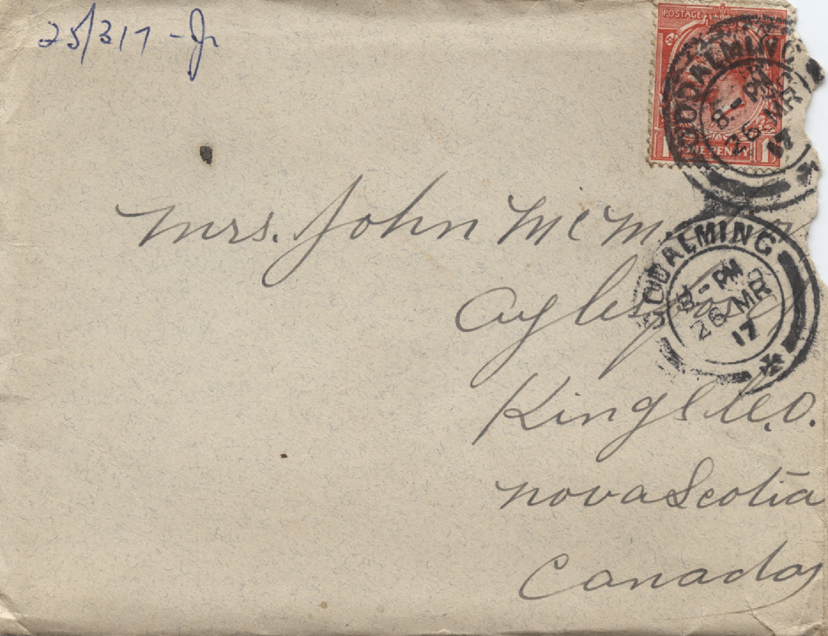 25/3/17 - Jr
POSTAGE
ONE PENNY
GODALMING
8 - PM
26 MR
17
Mrs. John
GODALMING
8 - PM
26 MR
17
Aylesford
Kings Co.
Nova Scotia
Canada